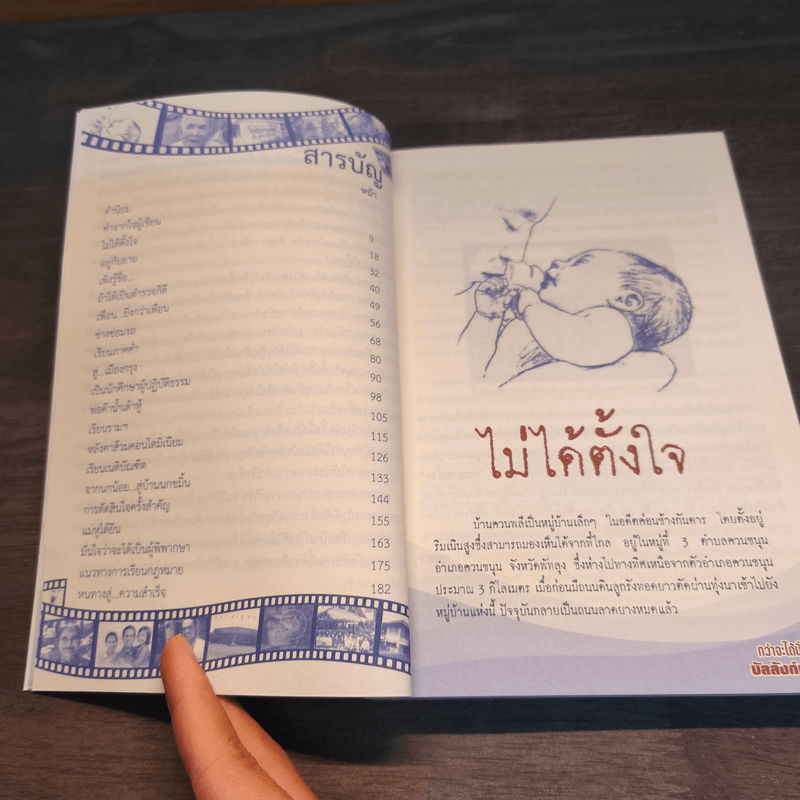 สารบัญ
หน้า
คำนิยม
คำจากใจผู้เขียน
ไม่ได้ตั้งใจ 9
อยู่กับยาย 18
เพิ่งรู้ชื่อ... 32
ถ้าได้เป็นตำรวจก็ดี 40
เพื่อน...ยิ่งกว่าเพื่อน 49
ช่างซ่อมรถ 56
เรียนภาคค่ำ 68
สู่...เมืองกรุง 80
เป็นนักศึกษาผู้ปฏิบัติธรรม 90
พ่อค้าน้ำเต้าหู้ 98
เรียนรามฯ 105
หลังคาส้วมคอนโดมิเนียม 115
เรียนเนติบัณฑิต 126
จากนกน้อย...สู่บ้านนกขมิ้น 133
การตัดสินใจครั้งสำคัญ 144
แม่หูได้ยิน 155
มั่นใจว่าจะได้เป็นผู้พิพากษา 163
แนวทางการเรียนกฎหมาย 175
หนทางสู่...ความสำเร็จ 182
ไม่ได้ตั้งใจ
บ้านควนพลีเป็นหมู่บ้านเล็กๆ ในอดีตค่อนข้างกันดาร โดยตั้งอยู่
ริมเนินสูงซึ่งสามารถมองเห็นได้จากที่ไกล อยู่ในหมู่ที่ 3 ตำบลควนขนุน
อำเภอควนขนุน จังหวัดพัทลุง ซึ่งห่างไปทางทิศเหนือจากตัวอำเภอควนขนุน
ประมาณ 3 กิโลเมตร เมื่อก่อนมีถนนดินลูกรังทอดยาวตัดผ่านทุ่งนาเข้าไปยัง
หมู่บ้านแห่งนี้ ปัจจุบันกลายเป็นถนนลาดยางหมดแล้ว
กว่าจะได้
บัลลังก์